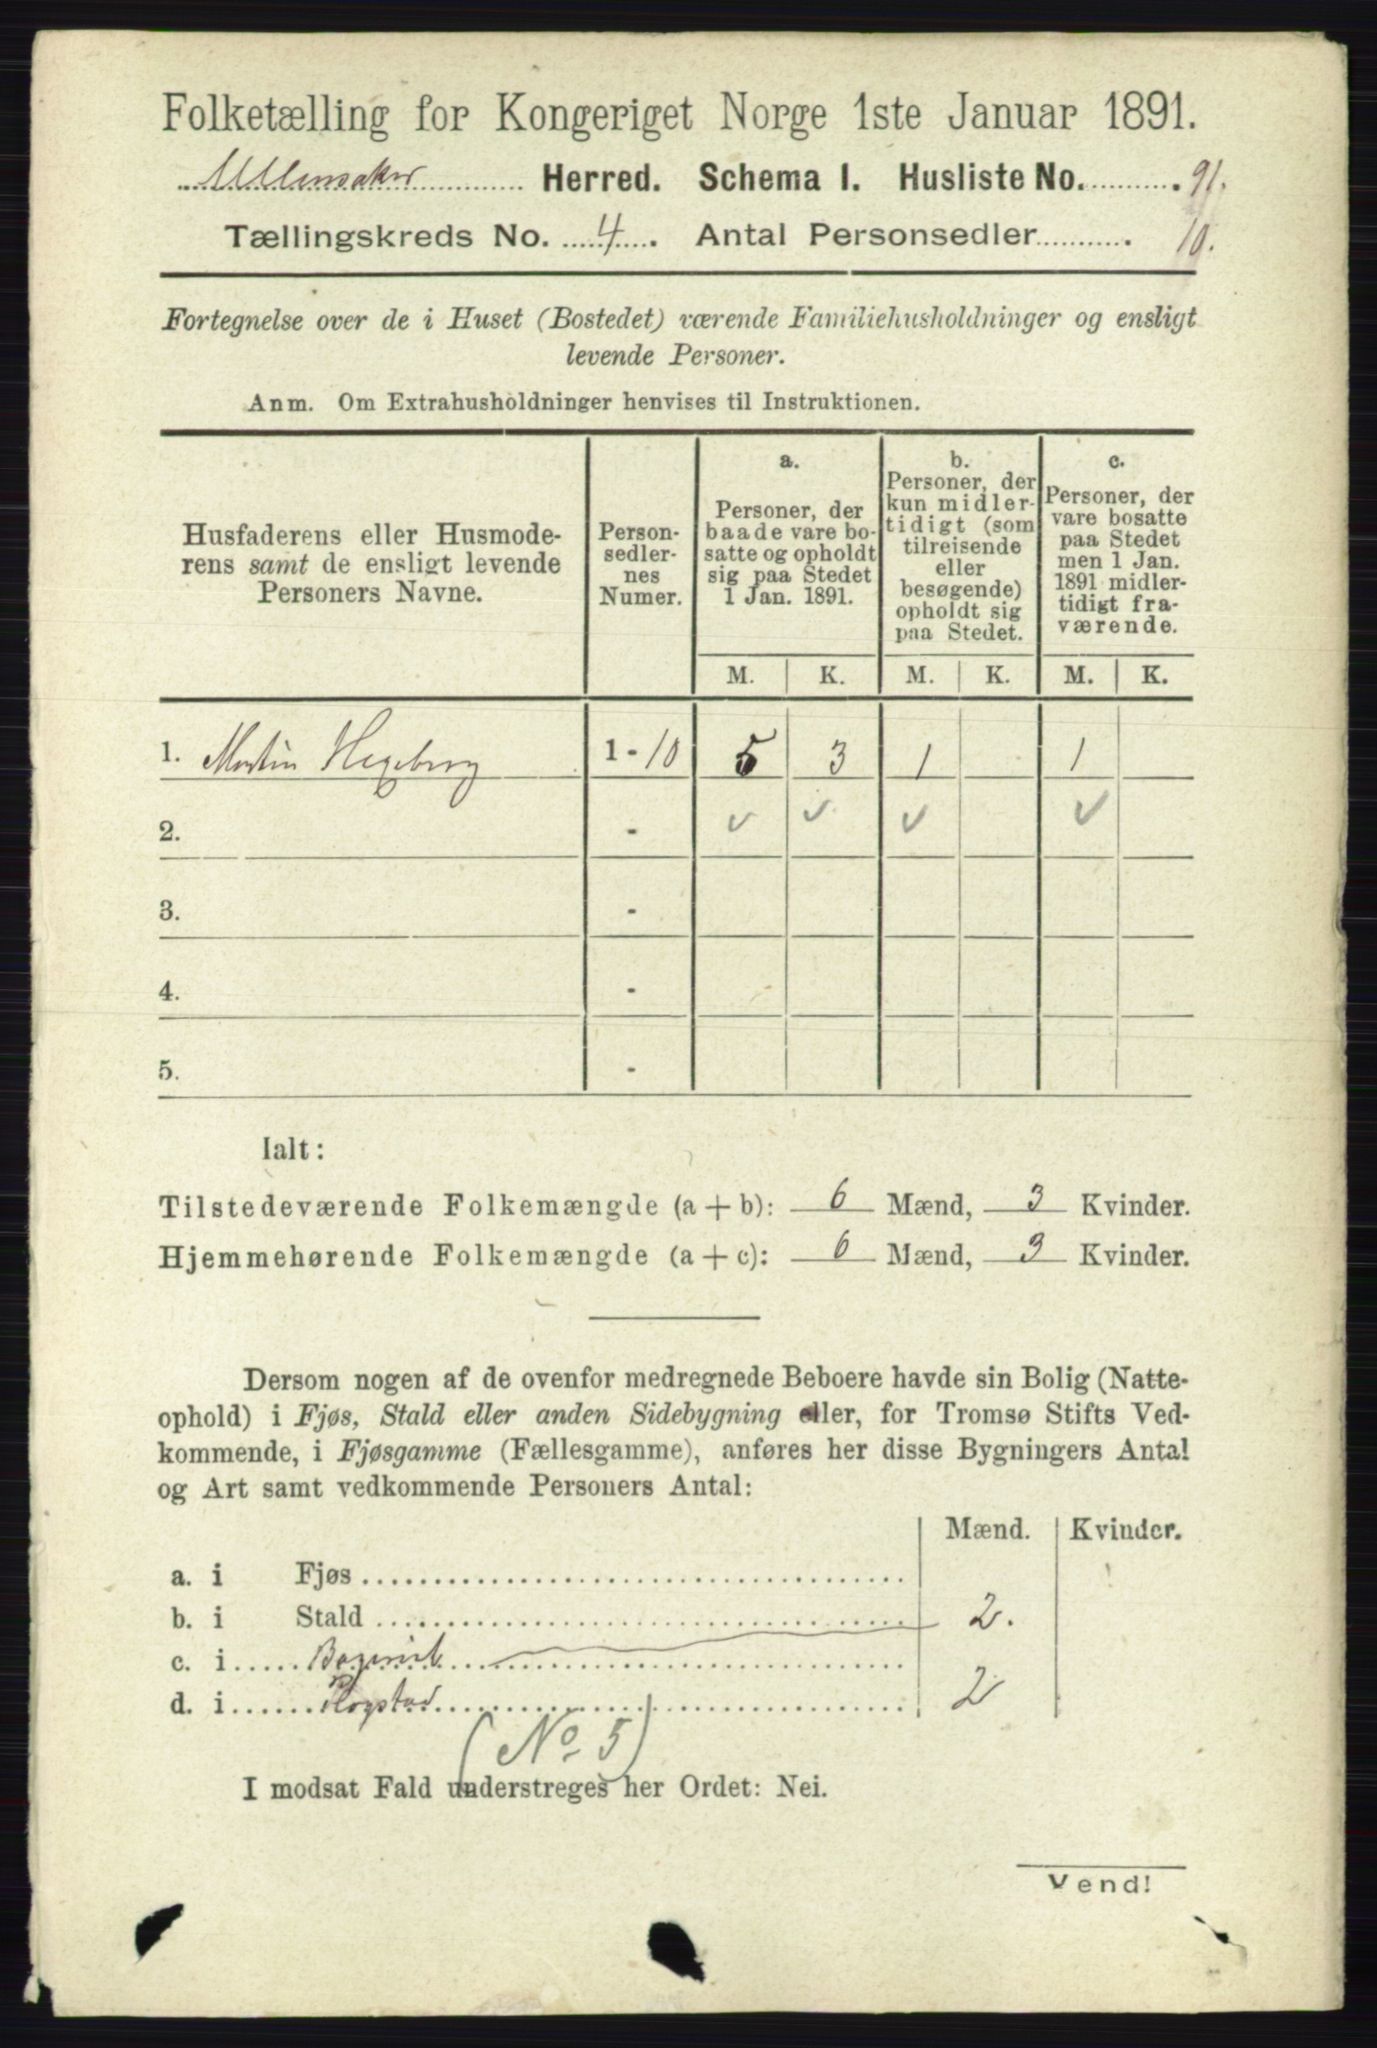 Folketælling for Kongeriget Norge 1ste Januar 1891.
Ullensaker Herred. Schema I. Husliste No. 91.
Tællingskreds No. 4. Antal Personsedler 10.
Fortegnelse over de i Huset (Bostedet) værende Familiehusholdninger og ensligt
levende Personer.
Anm. Om Extrahusholdninger henvises til Instruktionen.
Husfaderens eller Husmode-
rens samt de ensligt levende
Personers Navne.
Person-
sedler-
nes
Numer.
a.
Personer, der
baade vare bo-
satte og opholdt
sig paa Stedet
1 Jan. 1891.
b.
Personer, der
kun midler-
tidigt (som
tilreisende
eller
besøgende)
opholdt sig
paa Stedet.
c.
Personer, der
vare bosatte
paa Stedet
men 1 Jan.
1891 midler-
tidigt fra-
værende.
M. K. M. K. M. K.
1. Martin Hegeberg 1 - 10 5 3 1 1
2. - ✓ ✓ ✓ ✓
3. -
4. -
5. -
Ialt:
Tilstedeværende Folkemængde (a + b): 6 Mænd, 3 Kvinder.
Hjemmehørende Folkemængde (a + c): 6 Mænd, 3 Kvinder.
Dersom nogen af de ovenfor medregnede Beboere havde sin Bolig (Natte-
ophold) i Fjøs, Stald eller anden Sidebygning eller, for Tromsø Stifts Ved-
kommende, i Fjøsgamme (Fællesgamme), anføres her disse Bygningers Antal
og Art samt vedkommende Personers Antal:
Mænd. Kvinder.
a. i Fjøs
b. i Stald 2.
c. i
d. i 2
(No. 5)
I modsat Fald understreges her Ordet: Nei.
Vend!